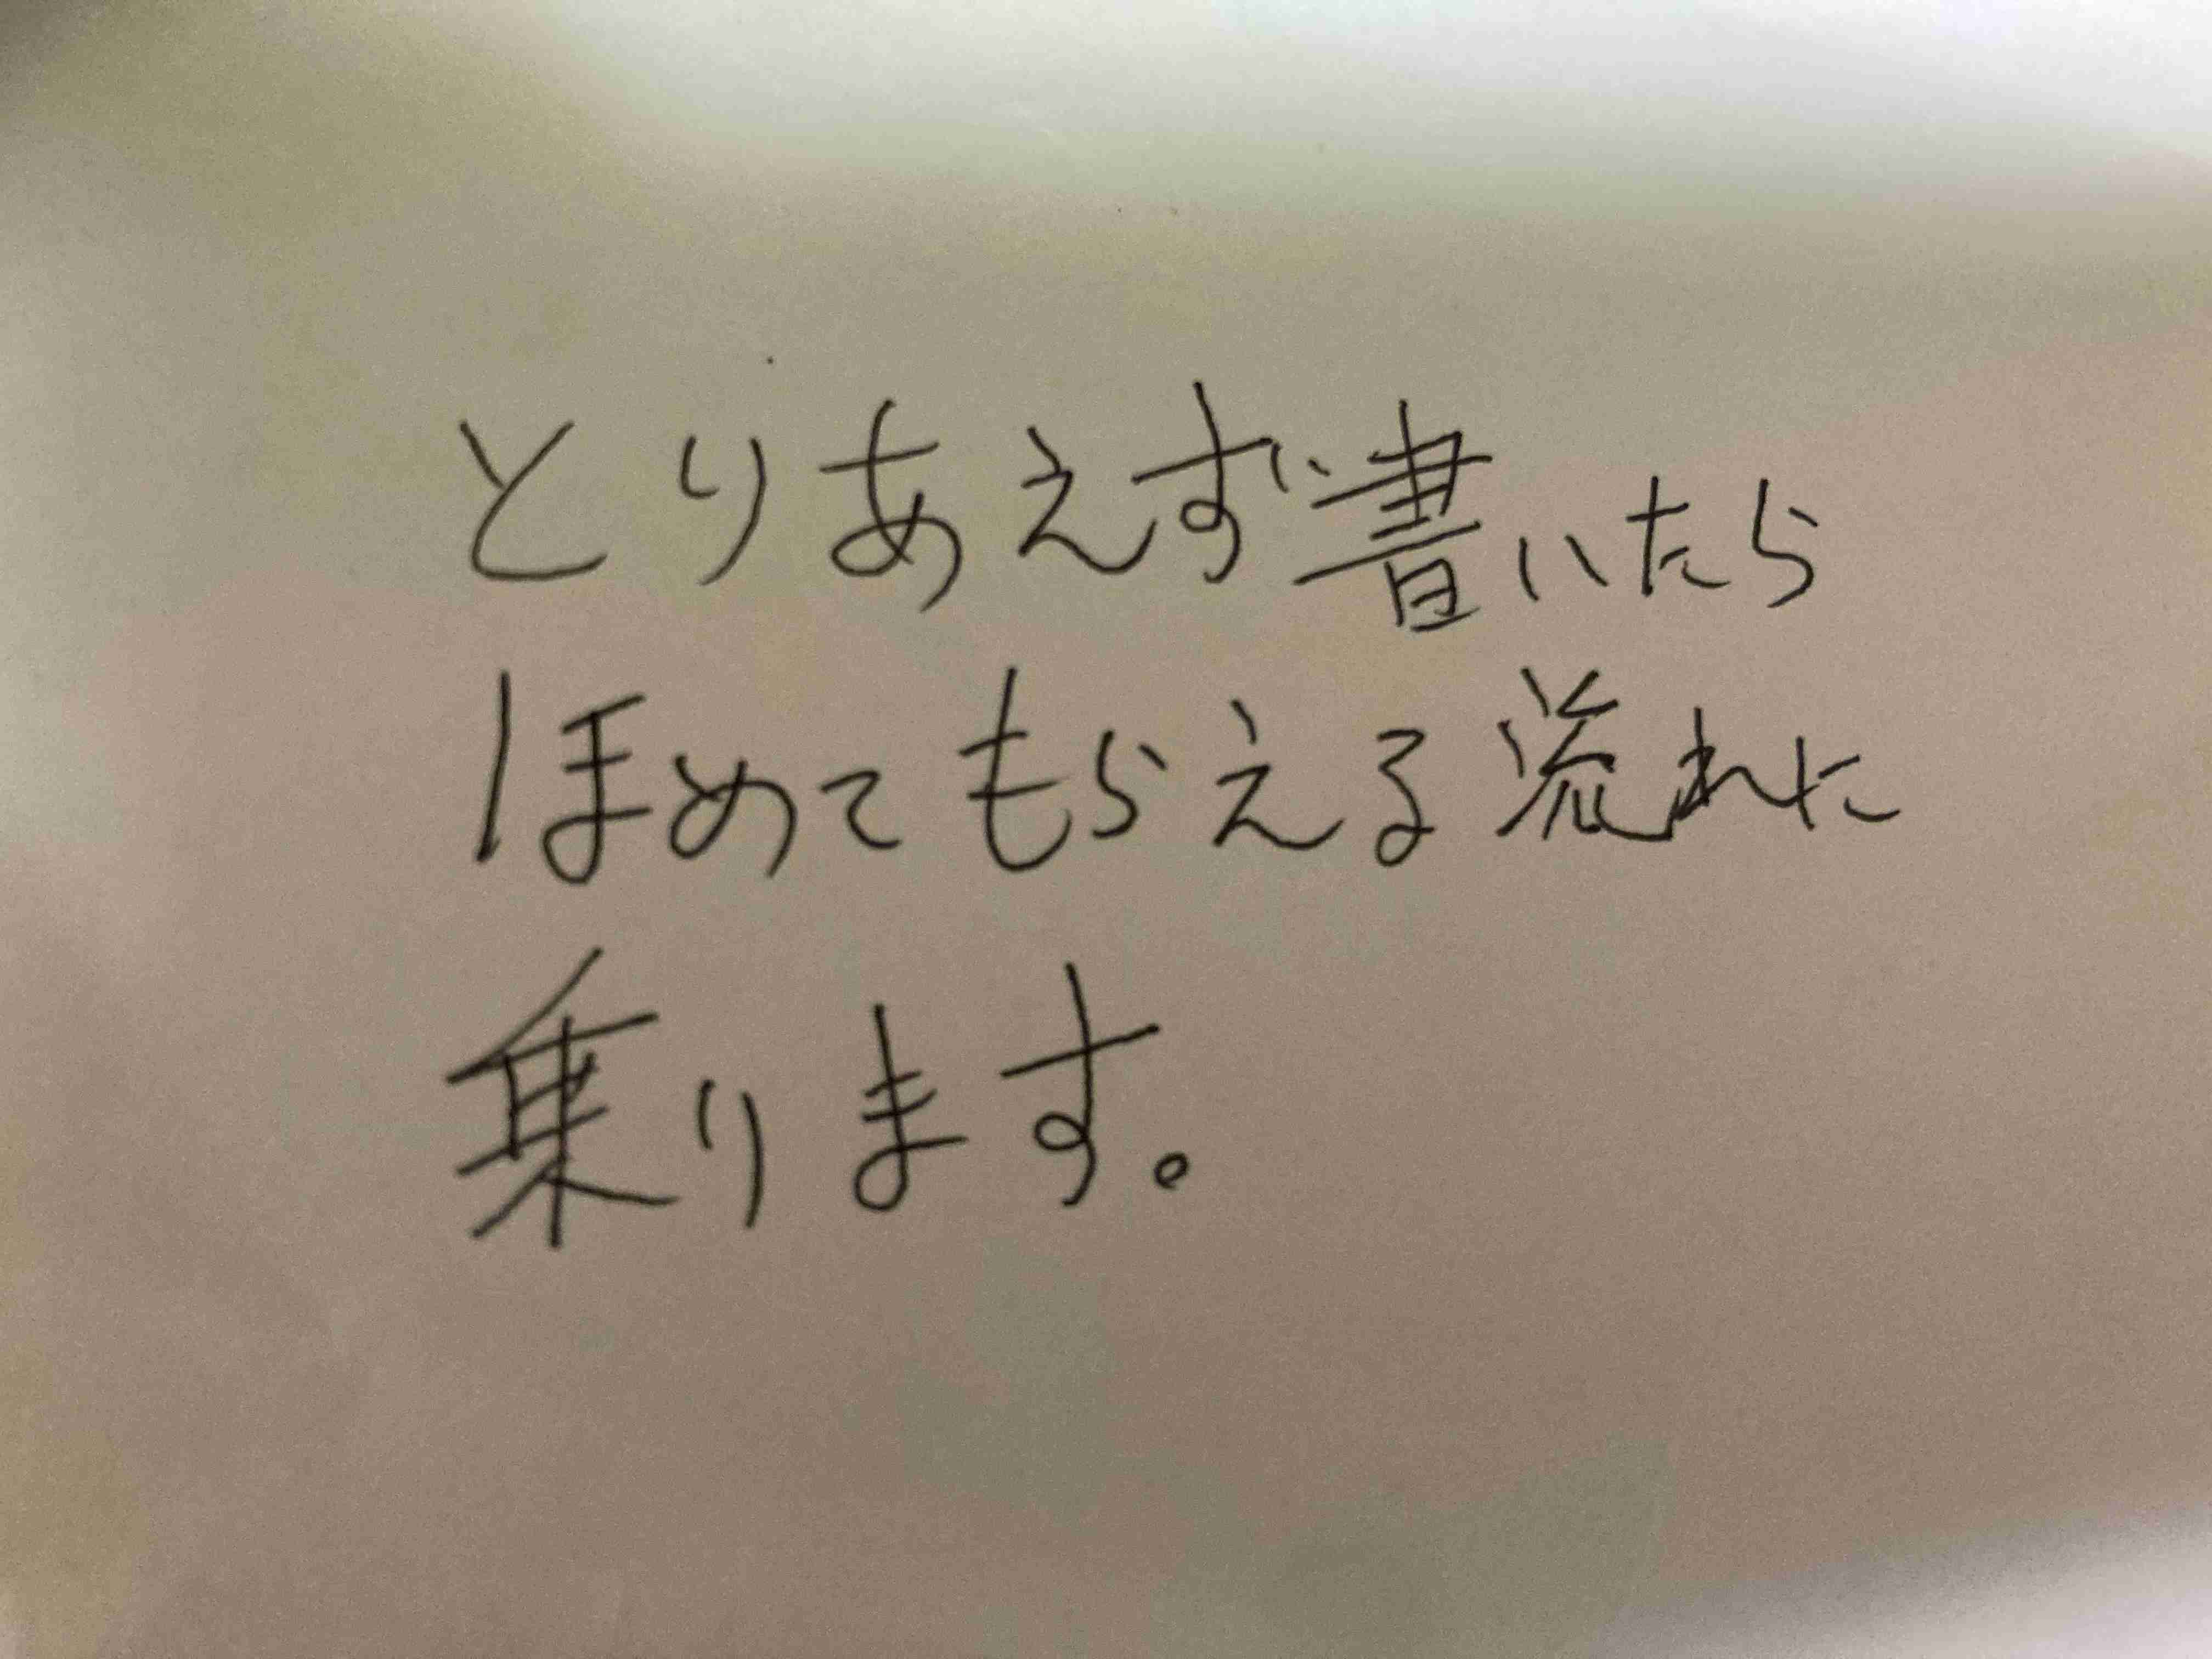 とりあえず書いたら
ほめてもらえる流れに
乗ります。